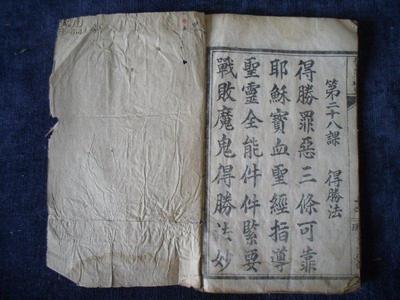 第二十八課 得勝法
得勝罪惡三條可靠
耶穌寳血聖經指導
聖靈全能件件緊要
戰敗魔鬼得勝法妙